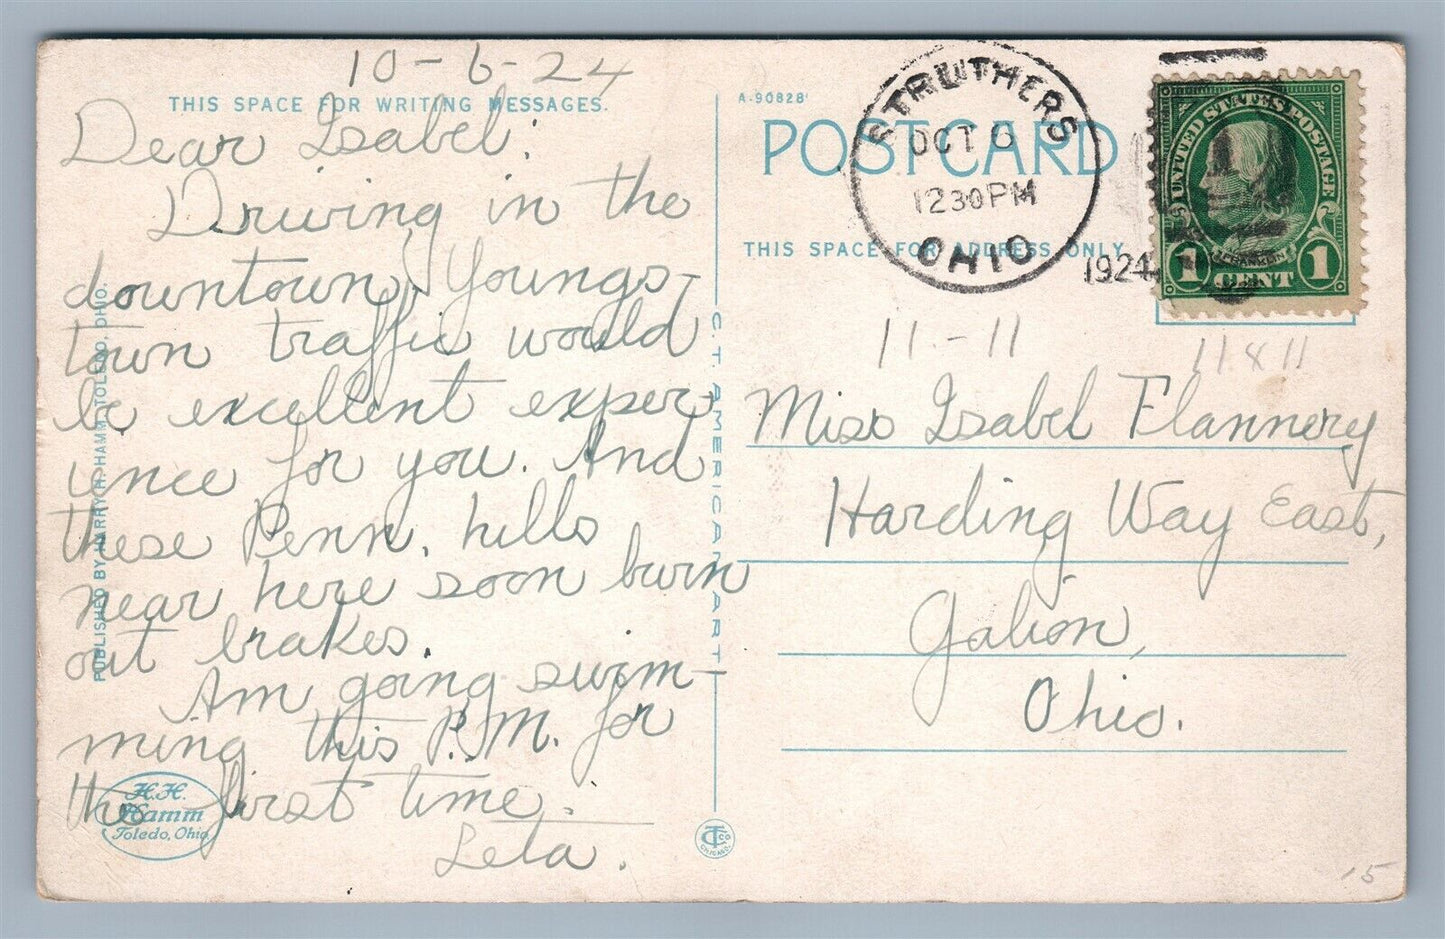 10-6-24
THIS SPACE FOR WRITING MESSAGES.
Dear Isabel:
Driving in the
downtown Youngs-
town traffic would
be excellent exper-
ience for you. And
these Penn. hills
near here soon burn
out brakes.
Am going swim-
ming this P.M. for
the first time.
Leta.
PUBLISHED BY HARRY H. HAMM, TOLEDO, OHIO.
H.H.
Hamm
Toledo, Ohio
C. T. AMERICAN ART
CT Co
CHICAGO
A-90828
POST CARD
THIS SPACE FOR ADDRESS ONLY
STRUTHERS
OCT 6
12 30 PM
OHIO
1924
UNITED STATES POSTAGE
FRANKLIN
1 CENT 1
11-11
11 x 11
Miss Isabel Flannery
Harding Way East,
Galion,
Ohio.
15